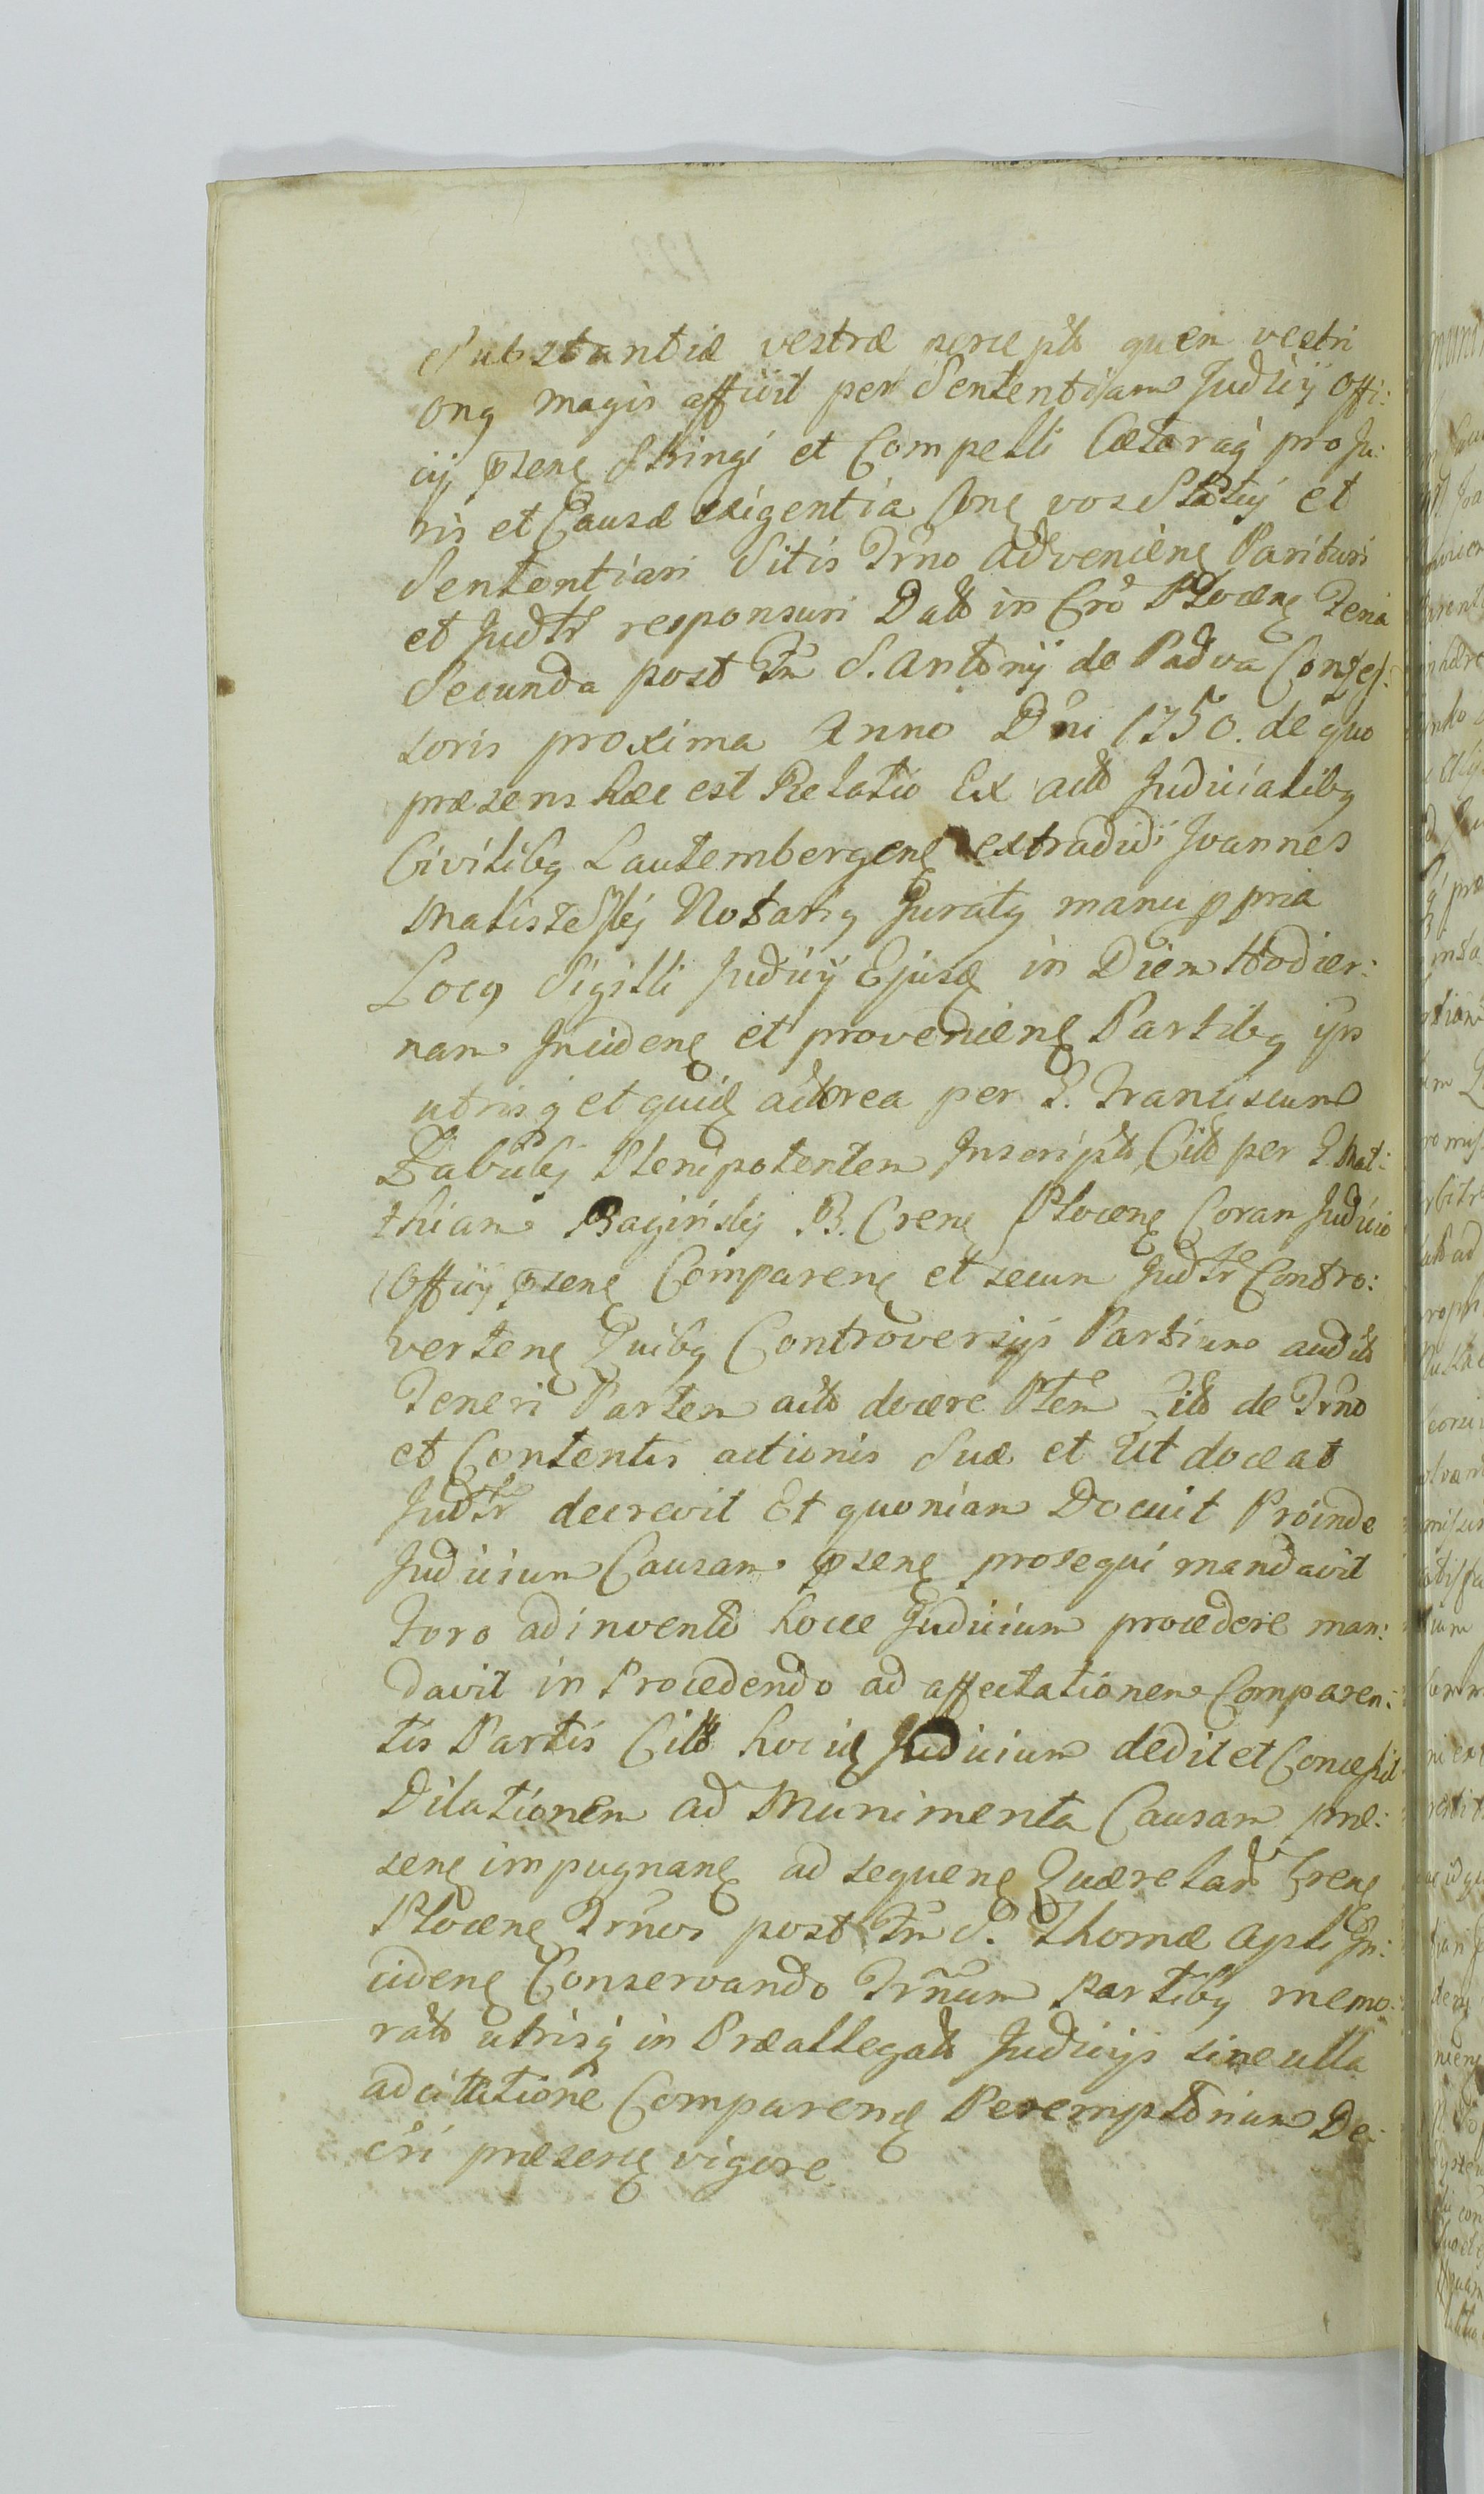 Substantiæ vestræ percepto quem vestri
onq magis afficit per Sententiam Judicij Offi:
cij pseng Stringi et Compelli Cæteraq pro Ju:
ris et Causæ exigentia vos Statuj et
Sententiari Sitis Trno advenieng Parituri
et Judtr responsuri Datt in Cro Ploceng Feria
Secunda post Fm S. Antonij de Padva Confes:
soris proxima Anno Dni 1750. de quo
præsens hæc est Relatio Ex actt Judicialibq
Civilibq Lautembergeng extradidi Joannes
Notariq Juratq manu ppria
Locq Sigilli Judicij Ejusd in Diem Hodier:
nam Incideng et provenieng Partibq ijs
utrisq et quid actorea per G. Franciscum
Plenipotentem Inscriptt Citt per G. Mat:
thiam Bagiński B. Creng Ploceng Coram Judicio
Officij pseng Compareng et secum Judtr Contro:
verteng Quibq Controversijs Partium auditt
Teneri Partem actt docere Ptem Citt de Trno
et Contentis actionis Suæ et Ut doceat
Judtr decrevit Et quoniam Docuit Proinde
Judicium Causam pseng prosequi mandavit
Foro adinvento hocce Judicium procedere man:
davit in Procedendo ad affectationem Comparen:
tis Partis Citt hoc id Judicium dedit et Concessit
Dilationem ad Munimenta Causam præ:
seng impugnang ad sequeng Quærelar Treng
Ploceng Trnos post Fm S. Thomæ Apli In:
cideng Conservando Trnum Partibq memo:
ratt utrisq in Præallegatt Judicijs sine ulla
adcitatione Compareng Peremptorium De:
cri præseng vigore.